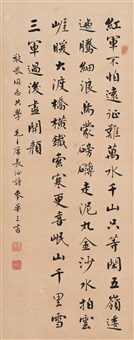 紅軍不怕遠征難萬水千山只等閒五嶺逶
迤騰細浪烏蒙磅礴走泥丸金沙水拍雲
崖暖大渡橋橫鐵索寒更喜岷山千里雪
三軍過後盡開顏
同志共學 毛主席長征詩 麥華三書